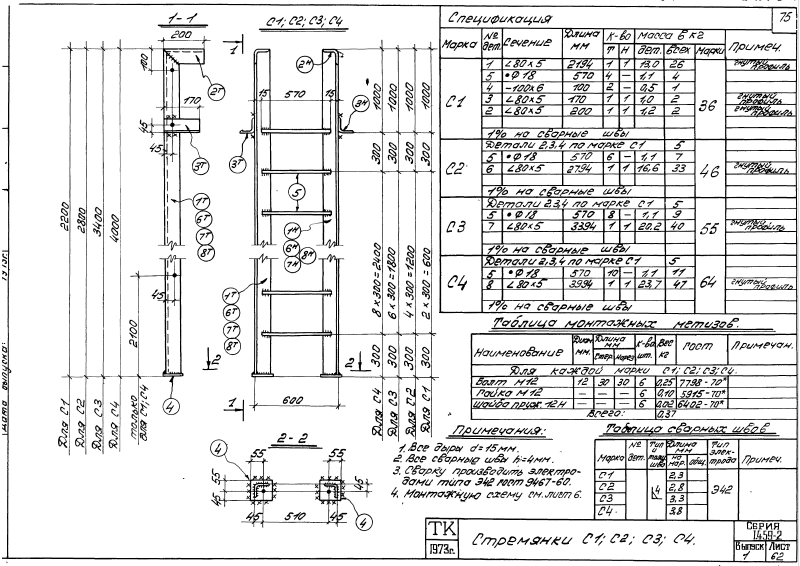 1-1
200
100
2Т
170
45
45
3Т
1Т
6Т
7Т
8Т
45
2
4
2200
2800
3400
4000
2100
Для С1
Для С2
Для С3
Для С4
только для С1; С4
С1; С2; С3; С4
1
2Н
15
570
15
3Н
3Т
5
1Н
6Н
7Н
8Н
1Т
6Т
7Т
8Т
2
1
600
1000
1000
1000
1000
300
300
300
300
8 x 300 = 2400
6 x 300 = 1800
4 x 300 = 1200
2 x 300 = 600
300
300
300
300
Для С4
Для С3
Для С2
Для С1
2-2
55
55
4
55
45
45
45
510
45
4
75
Спецификация
Марка
№ дет.
Сечение
Длина мм
К-во
Т
Н
масса в кг
дет.
всех
марки
Примеч.
С1
1 L80x5 2194 1 1 13,0 26 гнутый профиль
5 •Ф18 570 4 – 1,1 4
4 -100x6 100 2 – 0,5 1
3 L80x5 170 1 1 1,0 2 гнутый профиль
2 L80x5 200 1 1 1,2 2 гнутый профиль
36
1% на сварные швы
С2
Детали 2,3,4 по марке С1 5
5 •Ф18 570 6 – 1,1 7
6 L80x5 2794 1 1 16,6 33 гнутый профиль
46
1% на сварные швы
С3
Детали 2,3,4 по марке С1 5
5 •Ф18 570 8 – 1,1 9
7 L80x5 3394 1 1 20,2 40 гнутый профиль
55
1% на сварные швы
С4
Детали 2,3,4 по марке С1 5
5 •Ф18 570 10 – 1,1 11
8 L80x5 3994 1 1 23,7 47 гнутый профиль
64
1% на сварные швы
Таблица монтажных метизов.
Наименование
Диам мм.
Длина мм
К-во шт.
Вес кг
гост
Примечан.
Для каждой марки С1; С2; С3; С4.
Болт М12 12 30 30 6 0,25 7798-70*
Гайка М12 – – – 6 0,10 5915-70*
Шайба пруж. 12Н – – – 6 0,02 6402-70*
Всего: 0,37
Примечания:
1. Все дыры d=15мм.
2. Все сварные швы h=4мм.
3. Сварку производить электро-
дами типа Э42 гост 9467-60.
4. Монтажную схему см. лист 6.
Таблица сварных швов
Марка
№ дет.
Тип и толщ. шва
Длина м
на мар.
общ.
Тип элек-трода
Примеч.
С1 2,3
С2 2,8
С3 3,3
С4 3,8
4
Э42
ТК
1973г.
Стремянки С1; С2; С3; С4.
Серия
1.459-2
Выпуск
1
Лист
62